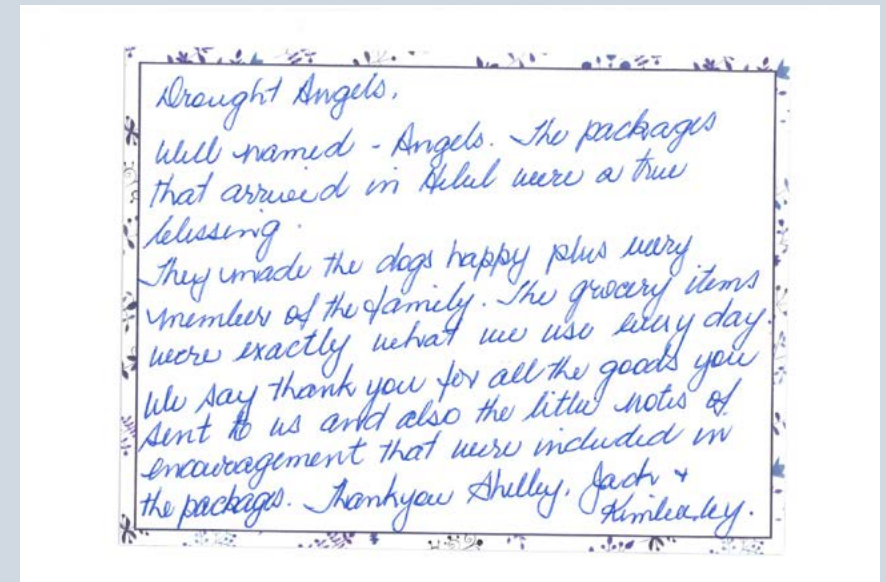 Drought Angels,
Well named - Angels. The packages
that arrived in were a true
blessing.
They made the dogs happy plus every
member of the family. The grocery items
were exactly what we use every day.
We say thank you for all the goods you
sent to us and also the little notes of
encouragement that were included in
the packages. Thankyou Shelley, Jack +
Kimberley.